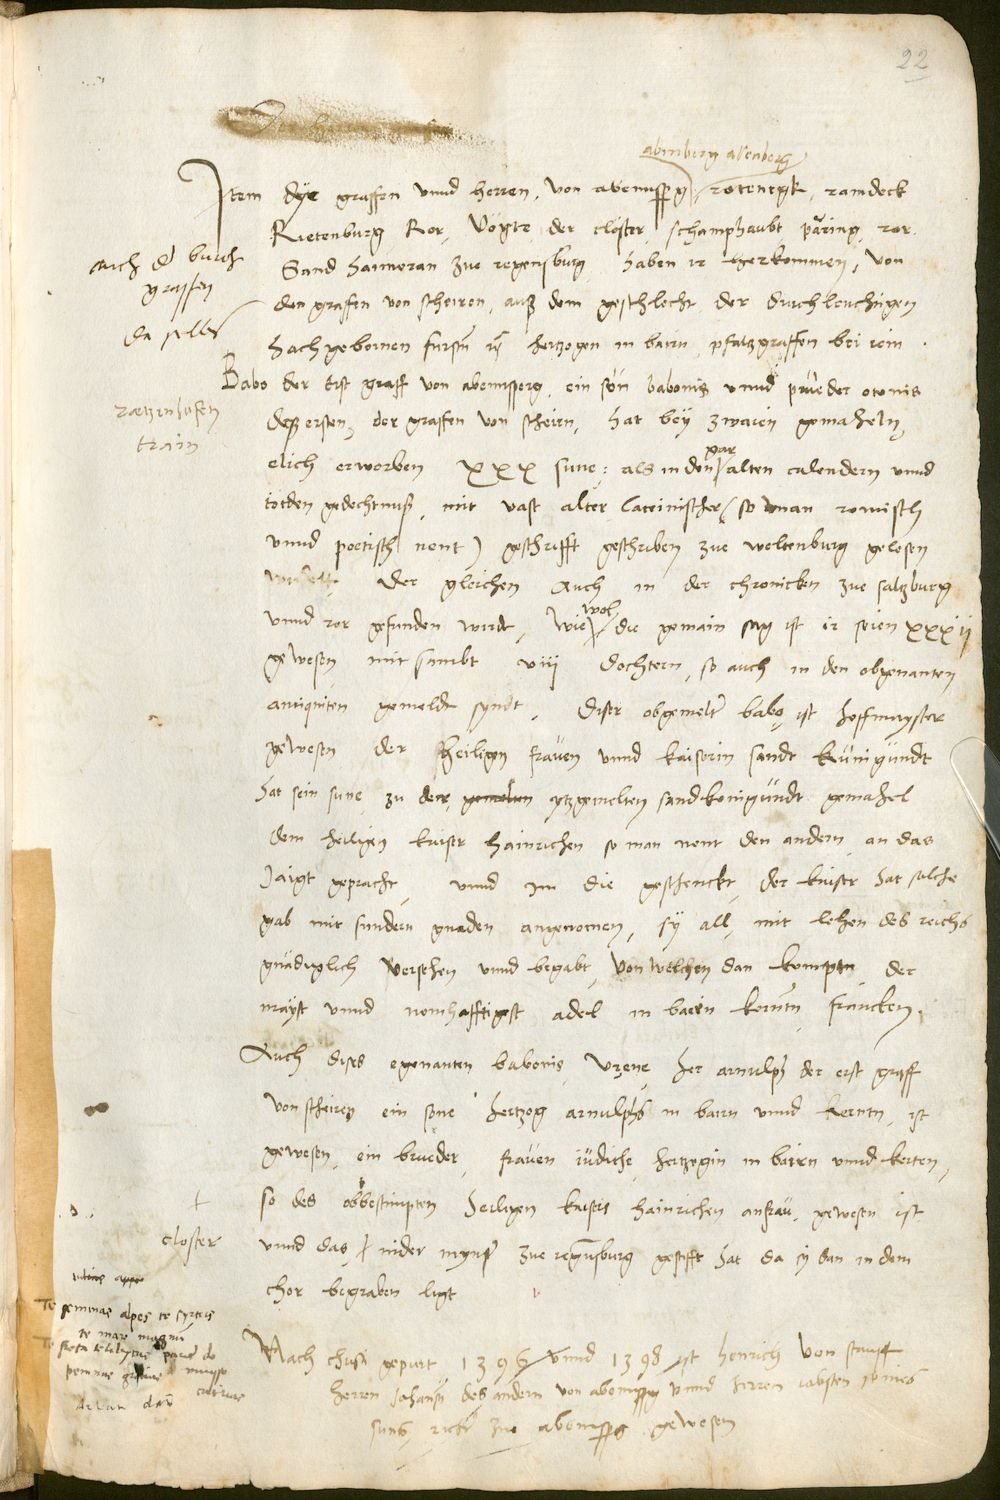 22
abensberg altenberg
Item dye graffen vnnd herren, von abennsperg, rotenegk, ramdeck
Rietenburg Ror, Vögte der closter, schamphaubt päring, ror
auch d burch
graffen
da selbs
Sand haimeran zue regenspurg haben ir herkommen, von
den graffen von scheiren, auß dem geschlecht der durchleuchtigen
hochgebornen fursten vnd hertzogen in bairn, pfaltzgraffen bei rein.
Babo der erst graff von abennsperg, ein sön babonis vnnd prueder otonis
ratzenhofen
train
deß ersten, der graffen von scheirn, hat bey zwaien gemaheln,
elich erworben xxx sune: als in den gar alten calendern vnnd
totden gedechtnuß, mit vast alter lateinischer (so man romisch
vnnd poetisch nent) geschrifft geschriben zue weltenburg gelesen
der gleichen auch in der chronicken zue saltzburg
vnnd ror gefunden wirdt, wie wol die gemain sag ist ir seien xxxij
gewesen mit sambt viii dochtern, so auch in den obgenanten
antiquiten gemeldt syndt. Diser obgemelt babo ist hoffmayster
gewesen der heiligen frauen vnnd kaiserin sandt kunigundt
hat sein sune, zu dere gemelten ytzgemelten sand konigundt gemahel
dem heiligen kaiser hainrichen so man nent den andern, an das
Jaigt gepracht, vnnd im die geschenckt, der kaiser hat solche
gab mit sundern gnaden angenomen, sy all, mit lehen des reichs
gnädigklich versehen vnnd begabt, von welchen dan kompten der
mayst vnnd nomhafftigest adel in baiern kernntn francken.
Auch dises egenanten babonis, vrene, her arnulph der erst graff
von scheiren ein sone hertzog arnulphs in bairn vnnd kerntn, ist
gewesen, ein brueder, frauen iudithe, hertzogin in bairen vnnd kerten,
so des obbestimpten heiligen kaisers hainrichen anfrau, gewesen ist
+
closter
vnnd das + nider mynster zue regenspurg gestifft hat da sy dan in dem
chor begraben ligt
Te geminae alpes te syrteis
te mare magnum
Nach christi gepurt 1396 vnnd 1398 ist henrich von stauff
herren Johansen des andern von abennsperg vnnd herren iobsten seines
suns, richter zue abennsperg gewesen